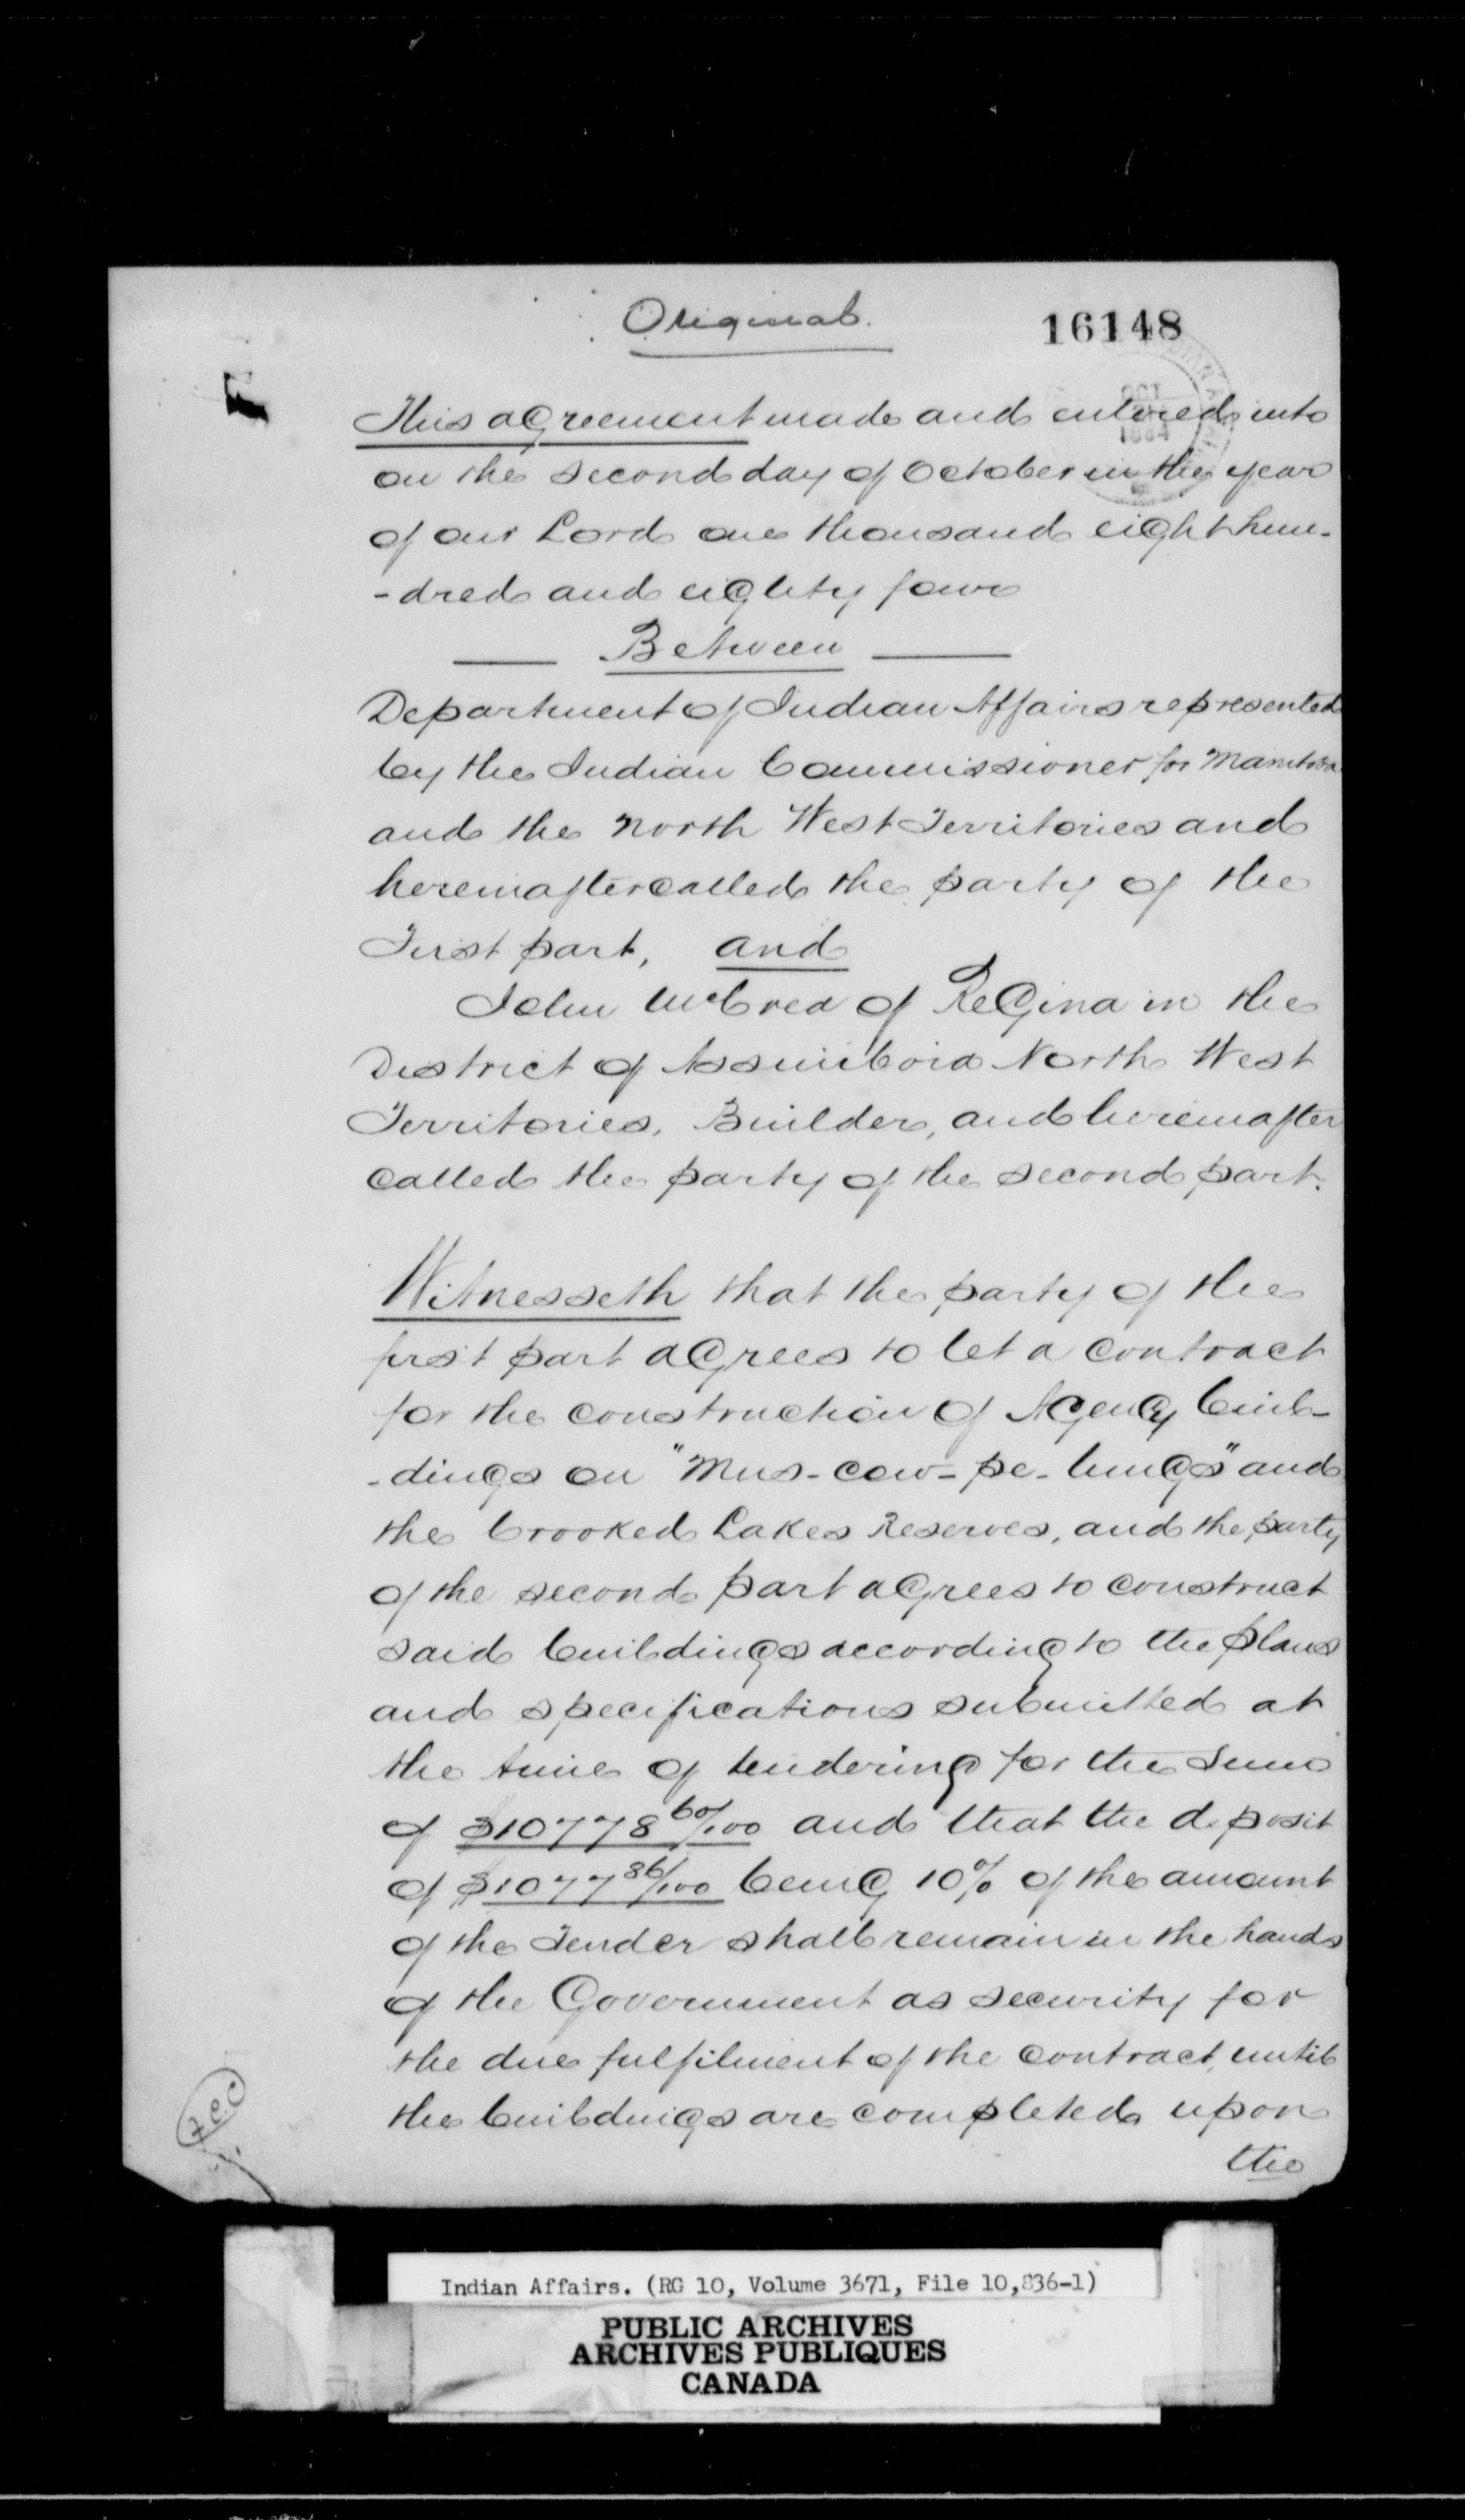 Original.
16148
OCT
1884
This agreement made and entered into
on the second day of October in the year
of our Lord one thousand eight hun-
-dred and eighty four
Between
Department of Indian Affairs represented
by the Indian Commissioner for Manitoba
and the North West Territories and
hereinafter called the party of the
First part, and
John McCrea of Regina in the
District of Assiniboia North West
Territories, Builder, and hereinafter
called the party of the second part.
Witnesseth that the party of the
first part agrees to let a contract
for the construction of Agency buil-
-dings on "Mus-cow-pe-tung's" and
the Crooked Lakes Reserves, and the party
of the second part agrees to construct
said buildings according to the plans
and specifications submitted at
the time of tendering for the sum
of $10778 60/100 and that the deposit
of $1077 86/100 being 10% of the amount
of the Tender shall remain in the hands
of the Government as security for
the due fulfilment of the contract, until
the buildings are completed upon
the
Indian Affairs. (RG 10, Volume 3671, File 10,836-1)
PUBLIC ARCHIVES
ARCHIVES PUBLIQUES
CANADA